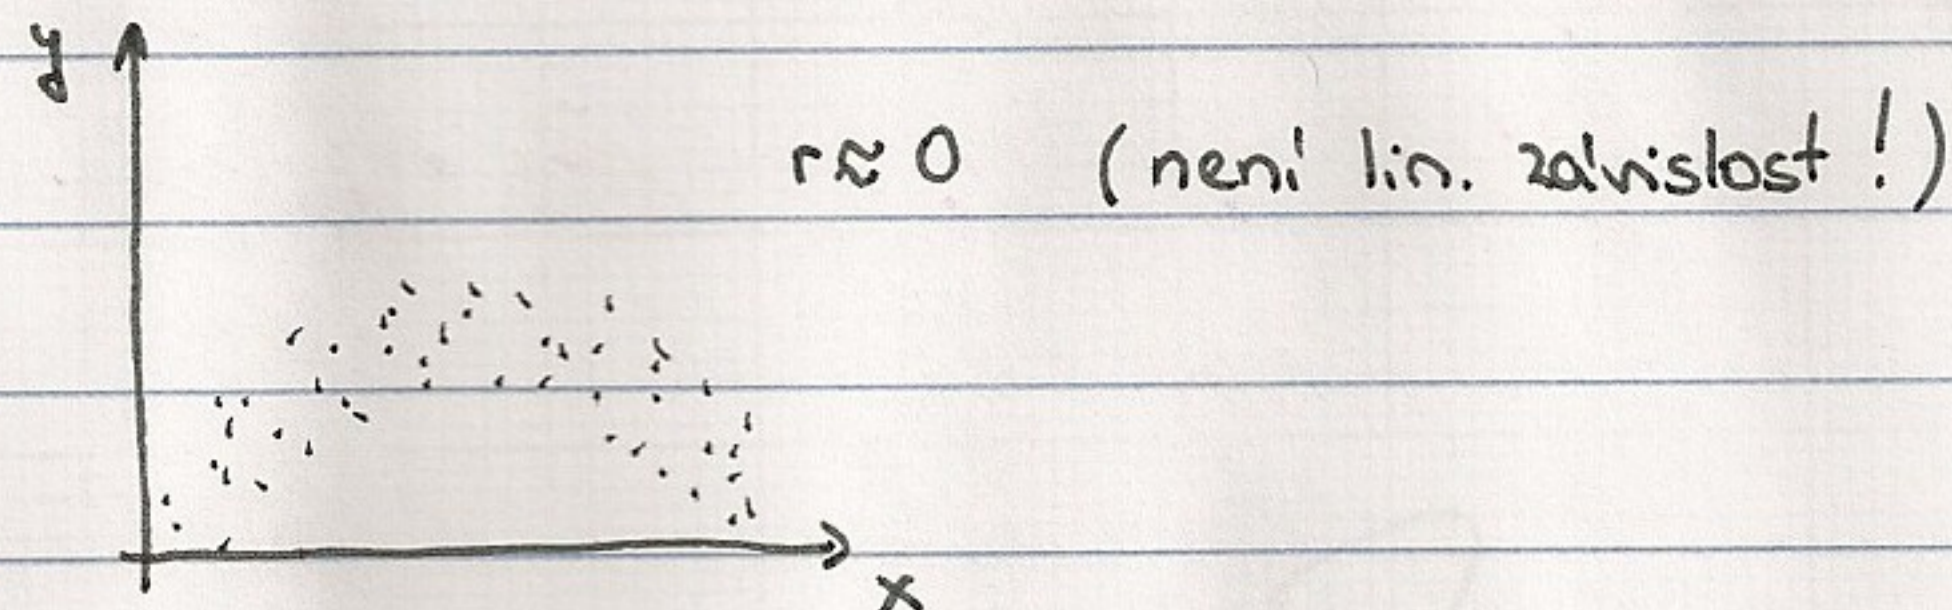 y
r ≈ 0 (není lin. závislost!)
x